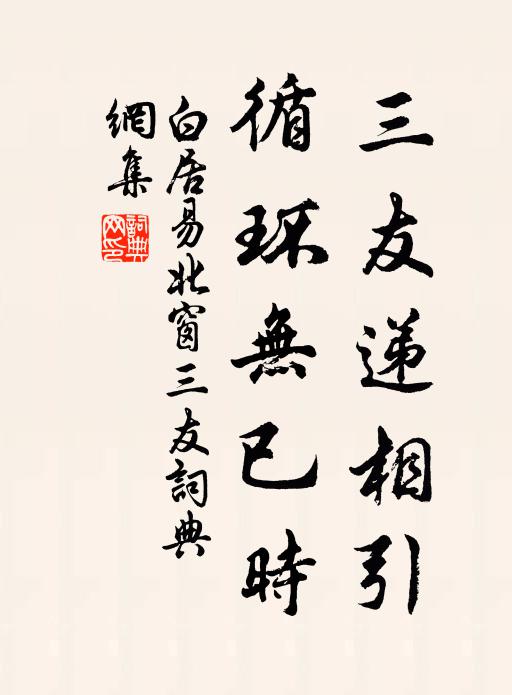 三友递相引
循环無已時
白居易北窗三友詞典
網集
詞典網印